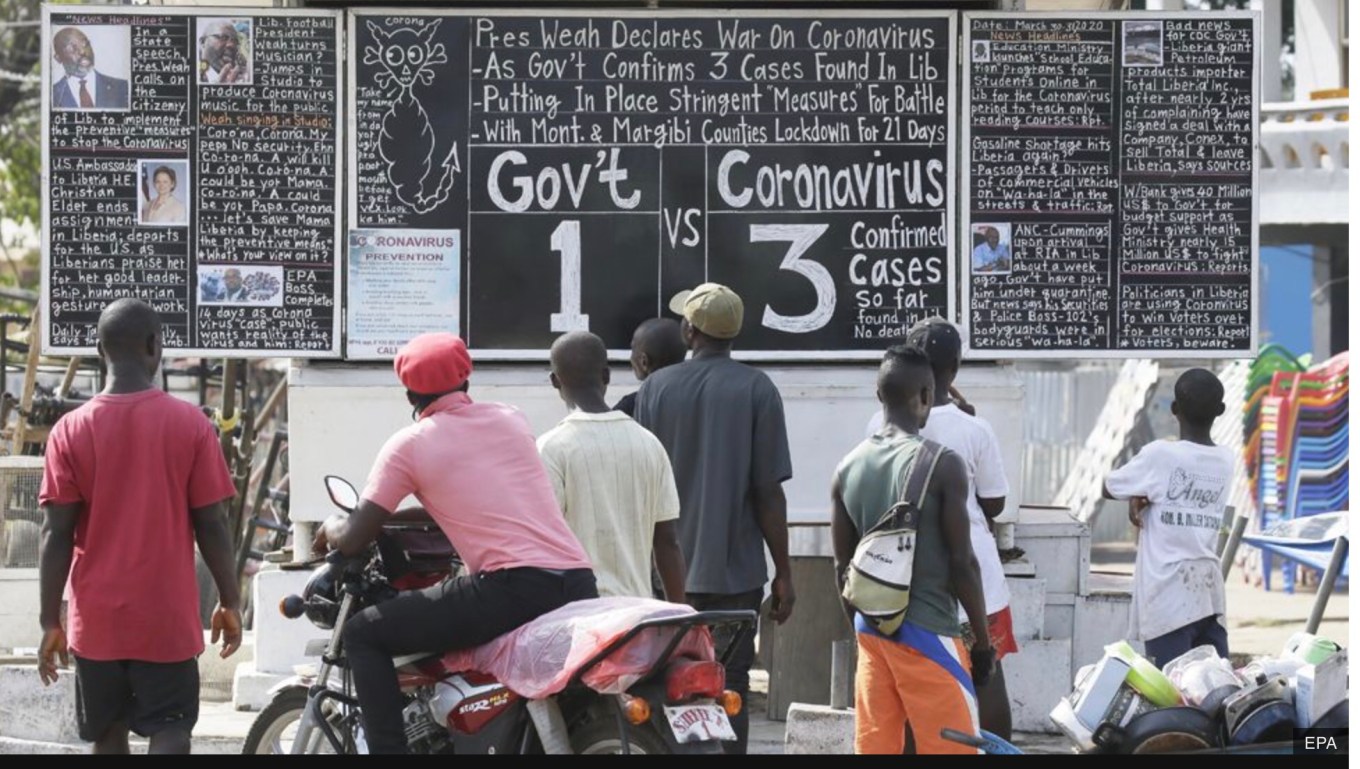 "News Headlines"
In a
state
speech,
Pres. Weah
calls on
the
citizenry
of Lib. to implement
the preventive "measures"
to stop the Coronavirus
U.S. Ambassador
to Liberia H.E
Christian
Elder ends
assignment
in Liberia; departs
for the U.S, as
Liberians praise her
for her good leader-
ship, humanitarian
gesture work.
Daily
says
Lib. Football
President
Weah turns
Musician?
-Jumps in
Studio to
produce Coronavirus
music for the public.
Weah singing in Studio:
"Coro'na, Corona. My
peps No security. Ehn
Co-ro-na. A will kill
U o ooh. Co.ro-na. A
could be yor Mama.
Co-ro-na. A could
be yor Papa, Corona
... let's save Mama
Liberia by keeping
the preventive means"
*What's your view on it?
EPA
Boss
Completes
14 days as Corona
virus "case", public
wants reality of the
Virus and him: Report
Corona
"Take
my name
from
in
yor
ugly
mouth
before
I get
vex
him."
CORONAVIRUS
PREVENTION
CALL
Pres Weah Declares War On Coronavirus
-As Gov't Confirms 3 Cases Found In Lib
-Putting In Place Stringent "Measures" For Battle
-With Mont. & Margibi Counties Lockdown For 21 Days
Gov't
1
VS
Coronavirus
3
Confirmed
cases
so far
found in Lib
No death
Date: March 30-31 2020
News Headlines
Education Ministry
launches "School Educa-
tion Programs for
Students Online in
Lib for the Coronavirus
period to teach only
reading courses: Rpt.
Gasoline Shortage hits
Liberia again?
-Passagers & Drivers
of commercial Vehicles
on "Wa-ha-la" in the
streets & traffic: Rpt
ANC-Cummings
upon arrival
at RIA in Lib
about a week
ago, Gov't have put
him under quarantine.
But news says, his Securities
& Police Boss-102's
bodyguards were in
serious "wa-ha-la".
Bad news
for CDC Gov't.
-Liberia giant
Petroleum
products importer
Total Liberia Inc.,
after nearly 2 yrs
of complaining have
signed a deal with a
Company, Conex, to
sell Total & leave
Liberia, says sources
W/Bank gives 40 Million
US$ to Gov't, for
budget support as
Gov't gives Health
Ministry nearly 15
Million US$ to fight
Coronavirus: Reports
Politicians in Liberia
are using Coronvirus
to win Voters over
for elections: Report
* Voters, beware.
Angel
HON. B.
EPA